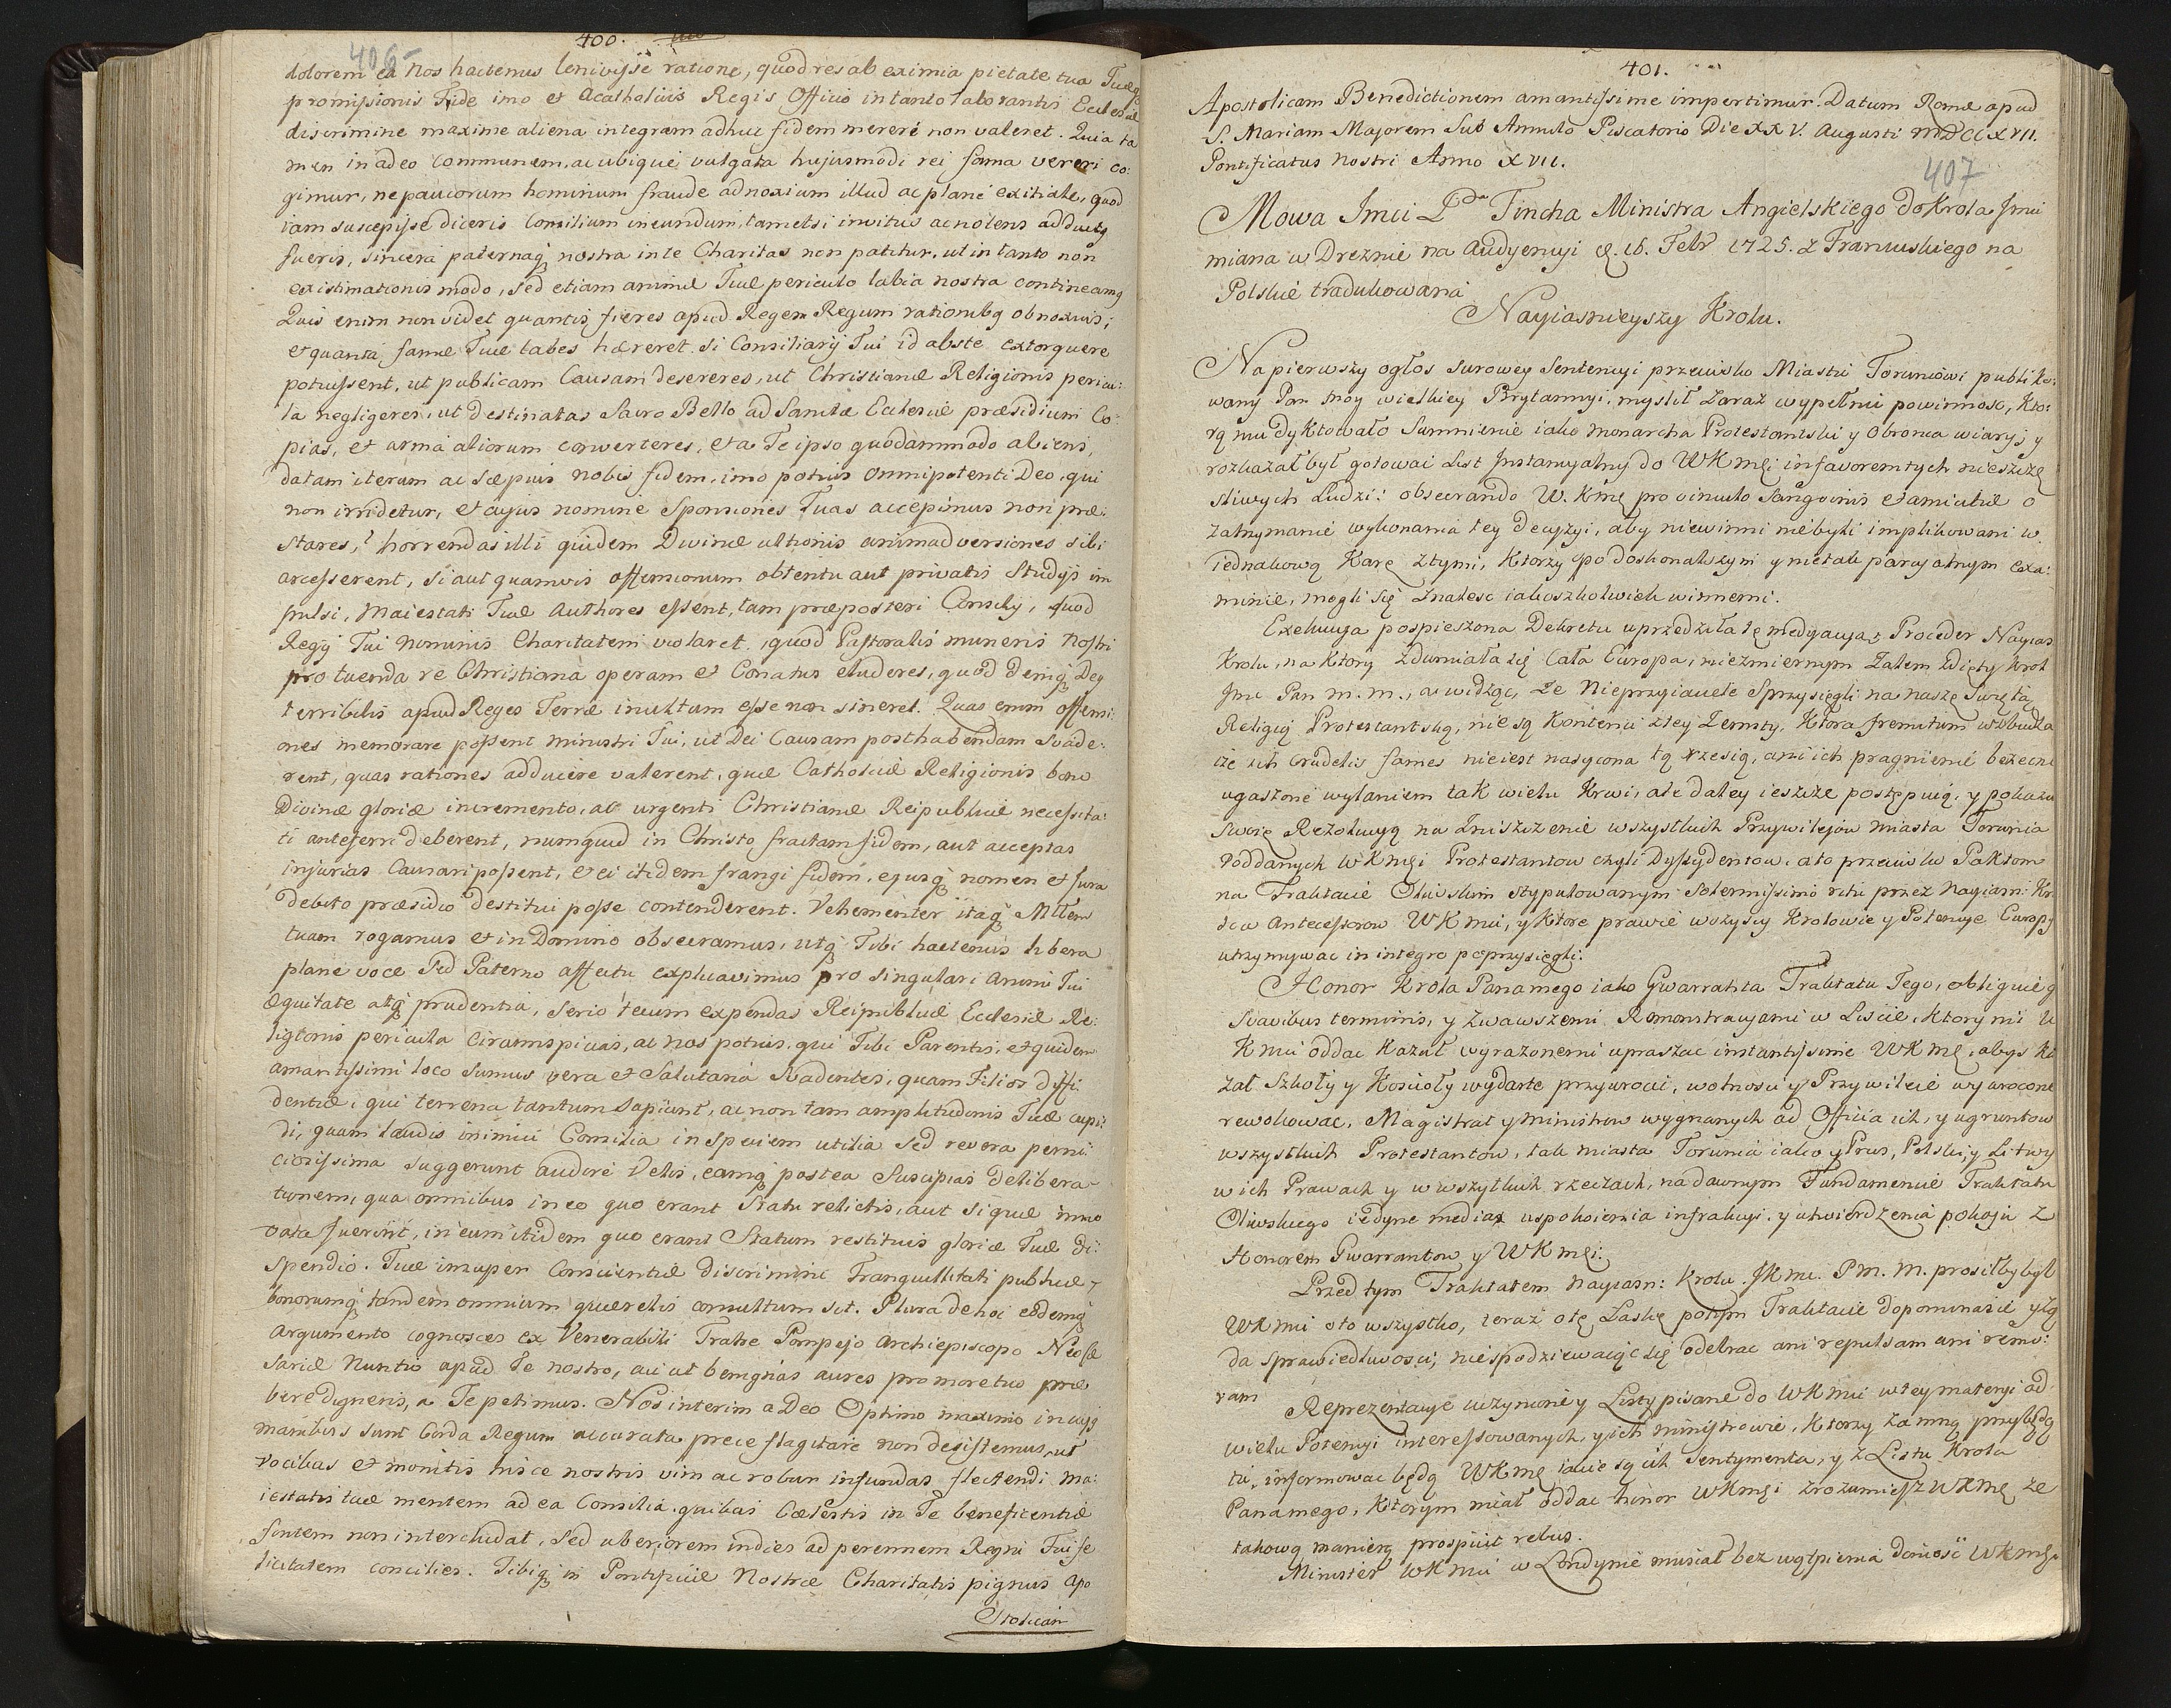 400.
406
dolorem ea Nos hactenus lenivisse ratione, quod res ab eximia pietate tua Tuæq
promissionis Fide imo et Acatholicis Regis Officio in tanto laborantis Ecclesiæ
discrimine maxime aliena integram adhuc fidem mereri non valeret. Quia ta
men in adeo communem, ac ubique vulgata hujusmodi rei fama vereri co:
gimur, ne paucorum hominum fraude ad noxium illud ac plane exitiale, quod
iam suscepisse diceris Consilium ineundum, tametsi invitus ac nolens adductq
fueris, sincera paternaq nostra in te Charitas non patitur, ut in tanto non
existimationis modo, sed etiam animæ Tuæ periculo labia nostra contineamq
Quis enim non videt quantis fieres apud Regem Regum rationibq obnoxius;
et quanta famæ Tuæ labes hæreret si Consiliarij Tui id abs te extorquere
potuissent, ut publicam Causam desereres, ut Christianæ Religionis pericu:
la negligeres, ut destinatas Sacro Bello ad Sanctæ Ecclesiæ præsidium Co:
pias, et arma aliorum converteres, et a Te ipso quodammodo alieni,
datam iterum ac sæpius nobis fidem, imo potius Omnipotenti Deo, qui
non irridetur, et cujus nomine Sponsiones Tuas accepimus non præ:
stares,? horrendas illi quidem Divinæ ultionis animadversiones sibi
arcesserent, si aut quamvis offensionum obtentu aut privatis Studijs im
pulsi, Maiestati Tuæ Authores essent, tam præposteri Consilij, quod
Regij Tui Nominis Charitatem violaret, quod Pastoralis muneris Nostri
pro tuenda re Christiana operam et Conatus eluderes, quod deniq Deq
terribilis apud Reges Terræ inultum esse non sineret. Quas enim offensi:
ones memorare possent ministri Tui, ut Dei Causam posthabendam Svade:
rent, quas rationes adducere valerent, quæ Catholicæ Religionis bono
Divinæ gloriæ incremento, ac urgenti Christianæ Reipublicæ necessita:
ti anteferri deberent, numquid in Christo fractam fidem, aut acceptas
injurias Causari possent, et ei itidem frangi fidem, ejusq nomen et jura
debito præsidio destitui posse contenderent. Vehementer itaq Mttem
tuam rogamus et in Domino obsecramus, utq Tibi hactenus libera
plane voce sed Paterno affectu explicavimus pro singulari animi Tui
æquitate atq prudentia, serio tecum expendas Reipublicæ Ecclesiæ Re:
ligionis pericula Circumspicias, ac nos potius, qui Tibi Parentis, et quidem
amantissimi loco sumus vera et Salutaria Svadentes, quam Filios diffi
dentiæ, qui terrena tantum Sapiunt, ac non tam amplitudinis Tuæ cupi:
di, quam laudis inimici Consilia in speciem utilia sed revera perni
ciosissima suggerunt audire Velis, eamq postea Suscipias delibera
tionem, qua omnibus in eo quo erant Statu relictis, aut si quæ inno
vata fuerint, in eum itidem quo erant Statum restituis gloriæ Tuæ di:
spendio. Tuæ insuper Conscientiæ discrimini Tranquillitati publicæ,
bonorumq tandem omnium querelis consultum sit. Plura de hoc eodemq
argumento cognosces ex Venerabili Fratre Pompejo Archiepiscopo Neoce
sariæ Nuntio apud Te nostro, cui ut benignas aures pro more tuo præ
bere digneris, a Te petimus. Nos interim a Deo Optimo maximo in cujq
manibus sunt Corda Regum accurata prece flagitare non desistemus, ut
vocibus et monitis hisce nostris vim ac robur infundas flectendi Ma:
iestatis tuæ mentem ad ea Consilia, quibus Cælestis in Te beneficentiæ
fontem non intercludat, Sed uberiorem indies ad perennem Regni Tui fe
licitatem concilies. Tibiq in Pontificiæ Nostræ Charitatis pignus Apo
Stolicam
401.
Apostolicam Benedictionem amantissime impertimur. Datum Romæ apud
S. Mariam Majorem Sub Annulo Piscatorio Die XXV. Augusti MDCCXVII.
Pontificatus Nostri Anno XVII.
407
Mowa Jmci Pdn Fincha Ministra Angielskiego do Krola Jmci
miana w Dreznie na Audyencyi d. 16. Febr 1725. z Francuskiego na
Polskie tradukowana
Nayiasnieyszy Krolu.
Na pierwszy ogłos surowey Sentencyi przeciwko Miastu Toruniowi publiko:
wany Pan moy wielkiey Brytannyi, myslił zaraz wypełnic powinnosc, Kto:
rą mu dyktowało Sumnienie iako Monarcha Protestantski y Obronca wiary, y
rozkazał był gotowac List Instancyalny do WKmci in favorem tych nieszczę
sliwych Ludzi: obsecrando W. Kmę pro vinculo Sangvinis et amicitiæ o
zatrzymanie wykonania tey decyzyi, aby niewinni nie byli implikowani w
iednakową Karę z tymi, Ktorzy po doskonalszym y nie tak parcyalnym exa:
minie, mogli się znalesc iakoszkolwiek winnemi.
Exekucya pospieszona Dekretu uprzedziła tę medyacyą, Proceder Nayias
Krolu, na Ktory zdumiała się Cała Europa, niezmiernym zalem zdięty Krol
Jmc Pan m. m., a widząc, ze Nieprzyiaciele Sprzysięgli na naszę Swiętą
Religią Protestantską, nie są Kontenci z tey Zemsty, Ktora fremitum wzbudza
ize ich Crudelis fames nieiest nasycona tą rzesią, ani ich pragnienie bezecne
ugaszone wylaniem tak wielu Krwi, ale daley ieszcze postępuią, y pokazu
Swoię Rezolucyą na zniszczenie wszystkich Przywilejow miasta Torunia
Poddanych WKmci Protestantow czyli Dyssydentow, a to przeciwko Paktom
na Traktacie Oliwskim stypulowanym Solennissimo ritu przez Nayiasn: Kr
low Antecessorow WKmci, y Ktore prawie wszyscy Krolowie y Potencye Europy
utrzymywac in integro poprzysięgli.
Honor Krola Pana mego iako Gwarranta Traktatu Tego, obliguie g
Svavibus terminis, y zwawszemi Remonstracyami w Liscie, Ktory mi W
Kmci oddac kazał wyrazonemi upraszac instantissime WKmę, abys ka
zał Szkoły y Koscioły wydarte przywrocic, wolnosci y Przywileie wywrocone
rewokowac, Magistrat y Ministrow wygnanych ad Officia ich, y ugruntow
wszystkich Protestantow, tak miasta Torunia iako y Prus, Polski, y Litwy
w ich Prawach y w wszytkich rzeczach, na dawnym Fundamencie Traktatu
Oliwskiego iedyne media uspokoienia infrakcyi, y utwierdzenia pokoju z
Honorem Gwarrantow y WKmci.
Przed tym Traktatem Nayiasn: Krolu JKmc. Pm. M. prosiłby był
WKmci o to wszystko, teraz o tę Łaskę po tym Traktacie dopominasie y żą
da sprawiedliwosci, niespodziewaiąc się odebrac ani repulsam ani remo:
ram
Reprezentacye uczynione y Listy pisane do WKmci w tey materyi od
wielu Potencyi interessowanych, y ich Ministrowie, Ktorzy za mną przyłączą
tu, informowac będą WKmę iakie są ich Sentymenta, y z Listu Krola
Pana mego, Ktorym miał oddac honor WKmci zrozumiesz WKmę ze
takową manierą prospicit rebus.
Minister WKmci w Londynie musiał bez wątpienia doniosc WKmci